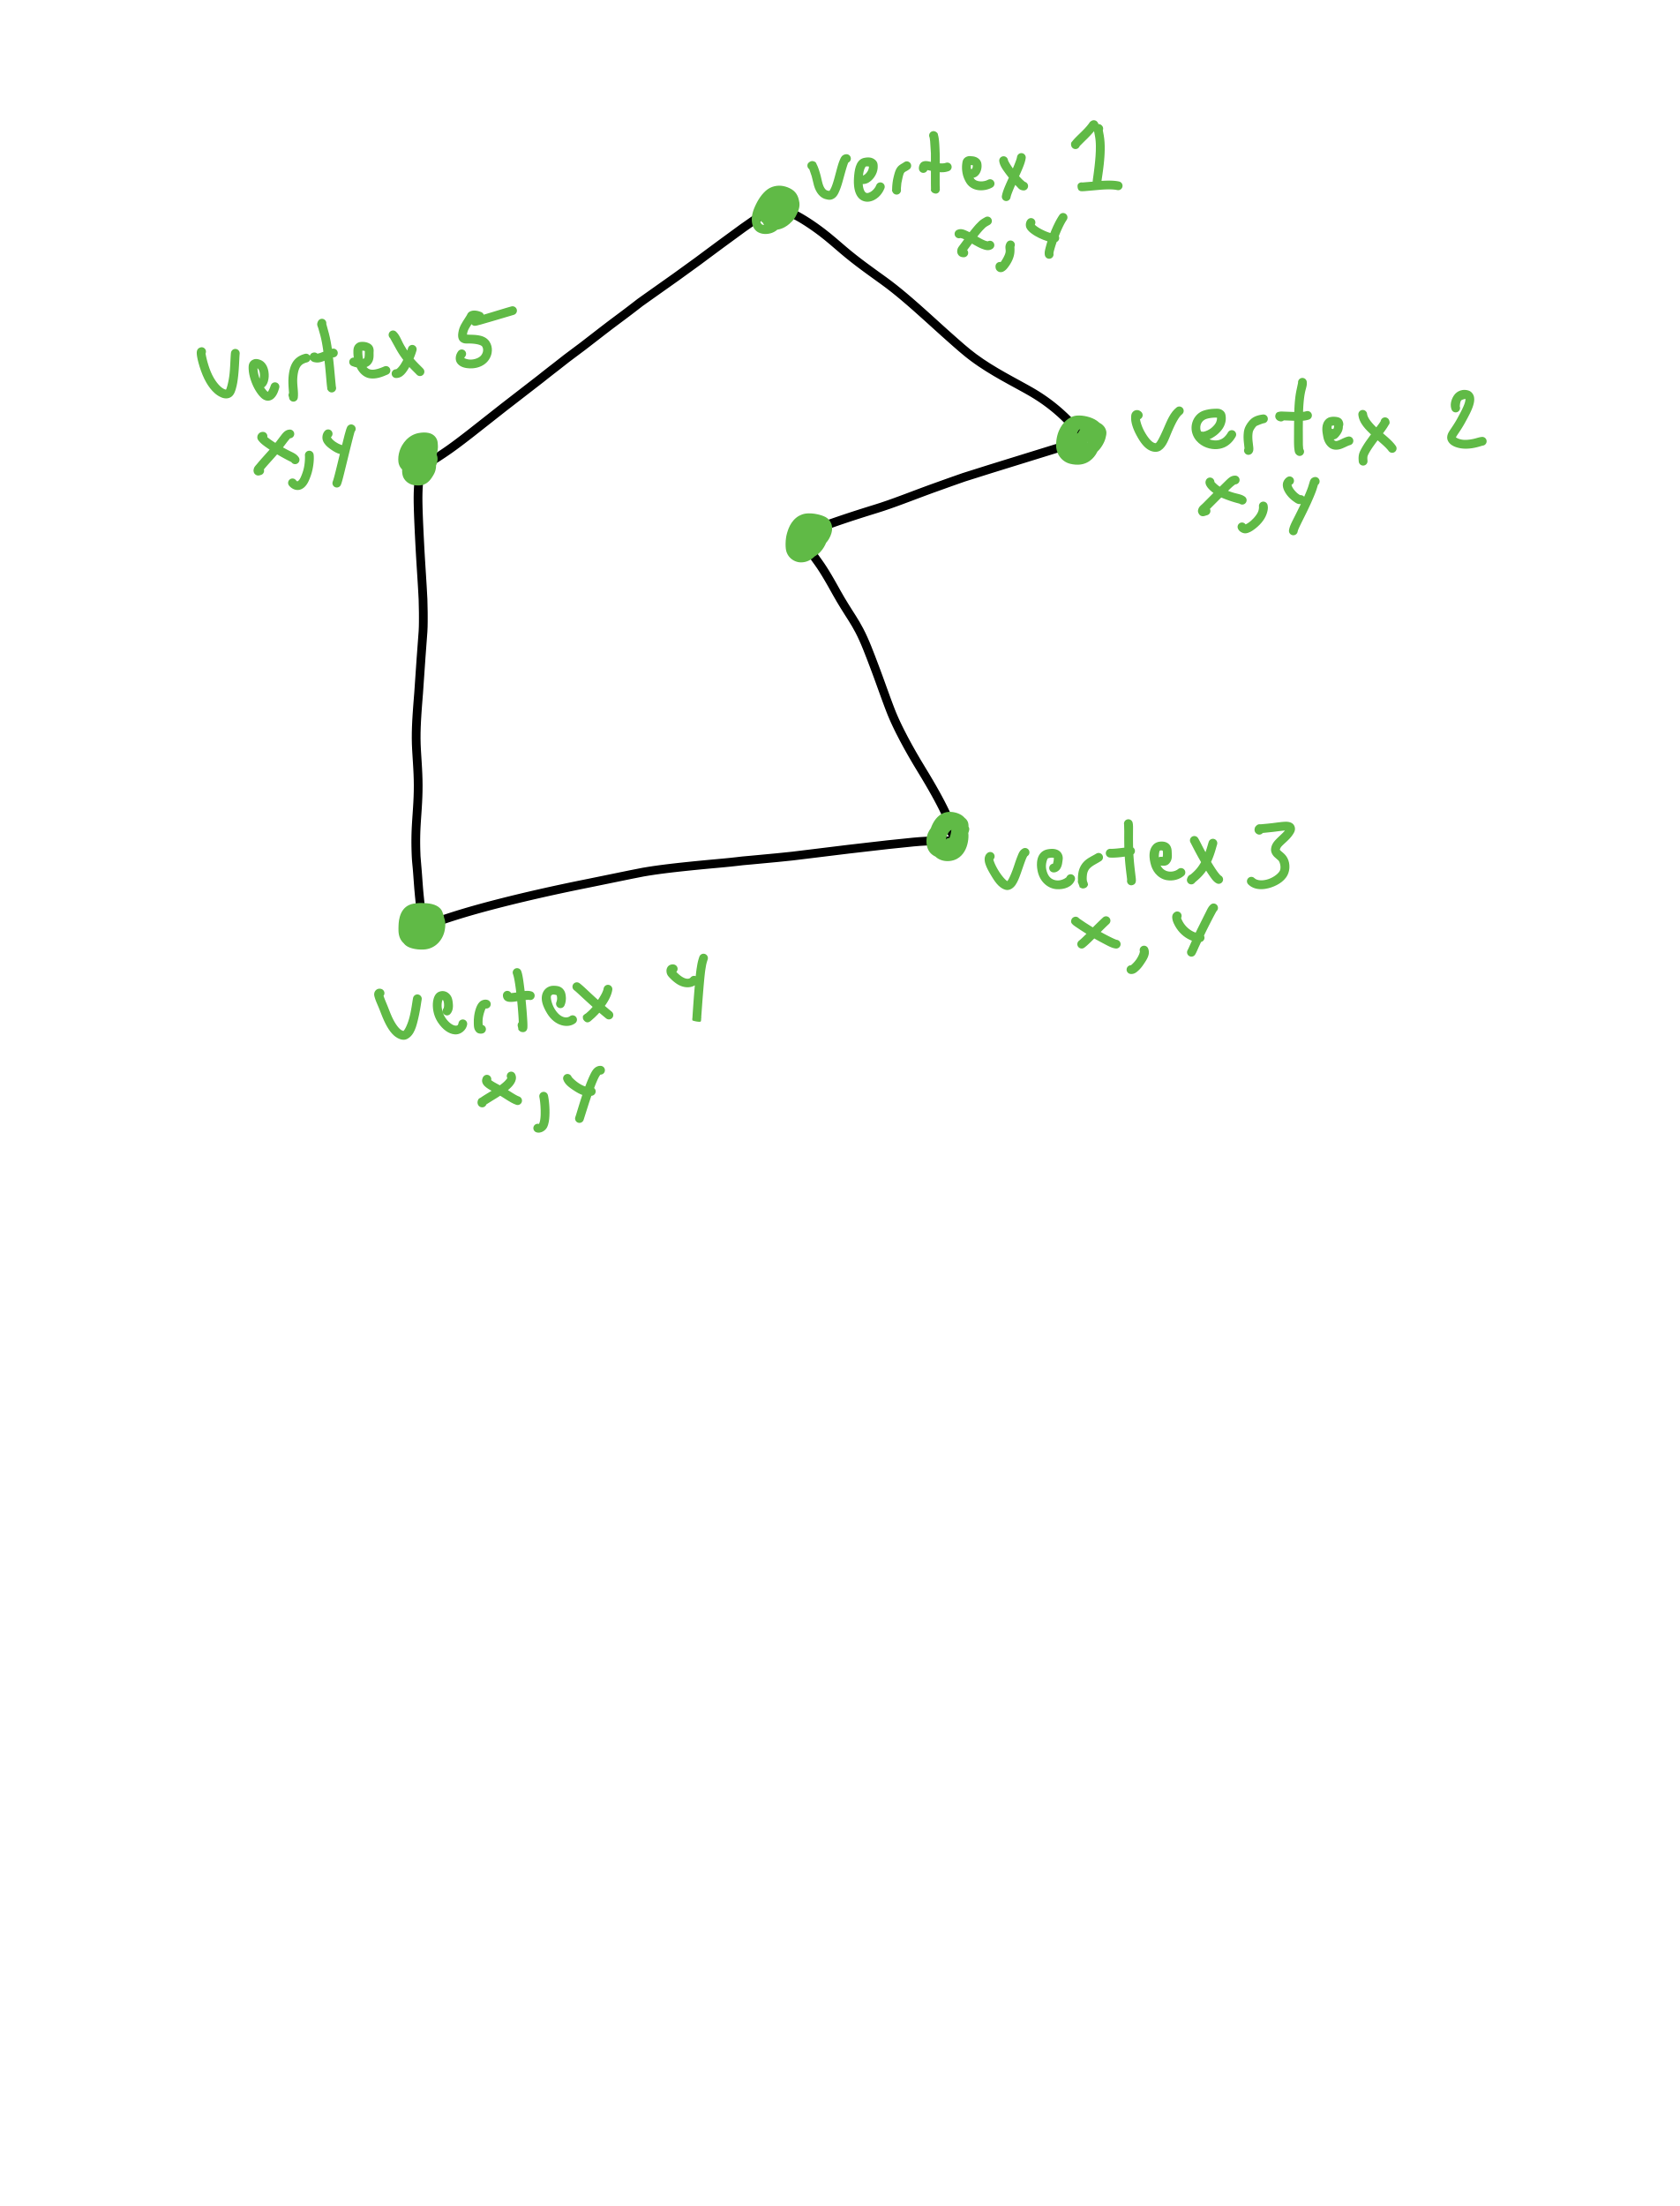 vertex 1
x,y
vertex 2
x,y
vertex 3
x,y
vertex 4
x,y
vertex 5
x,y